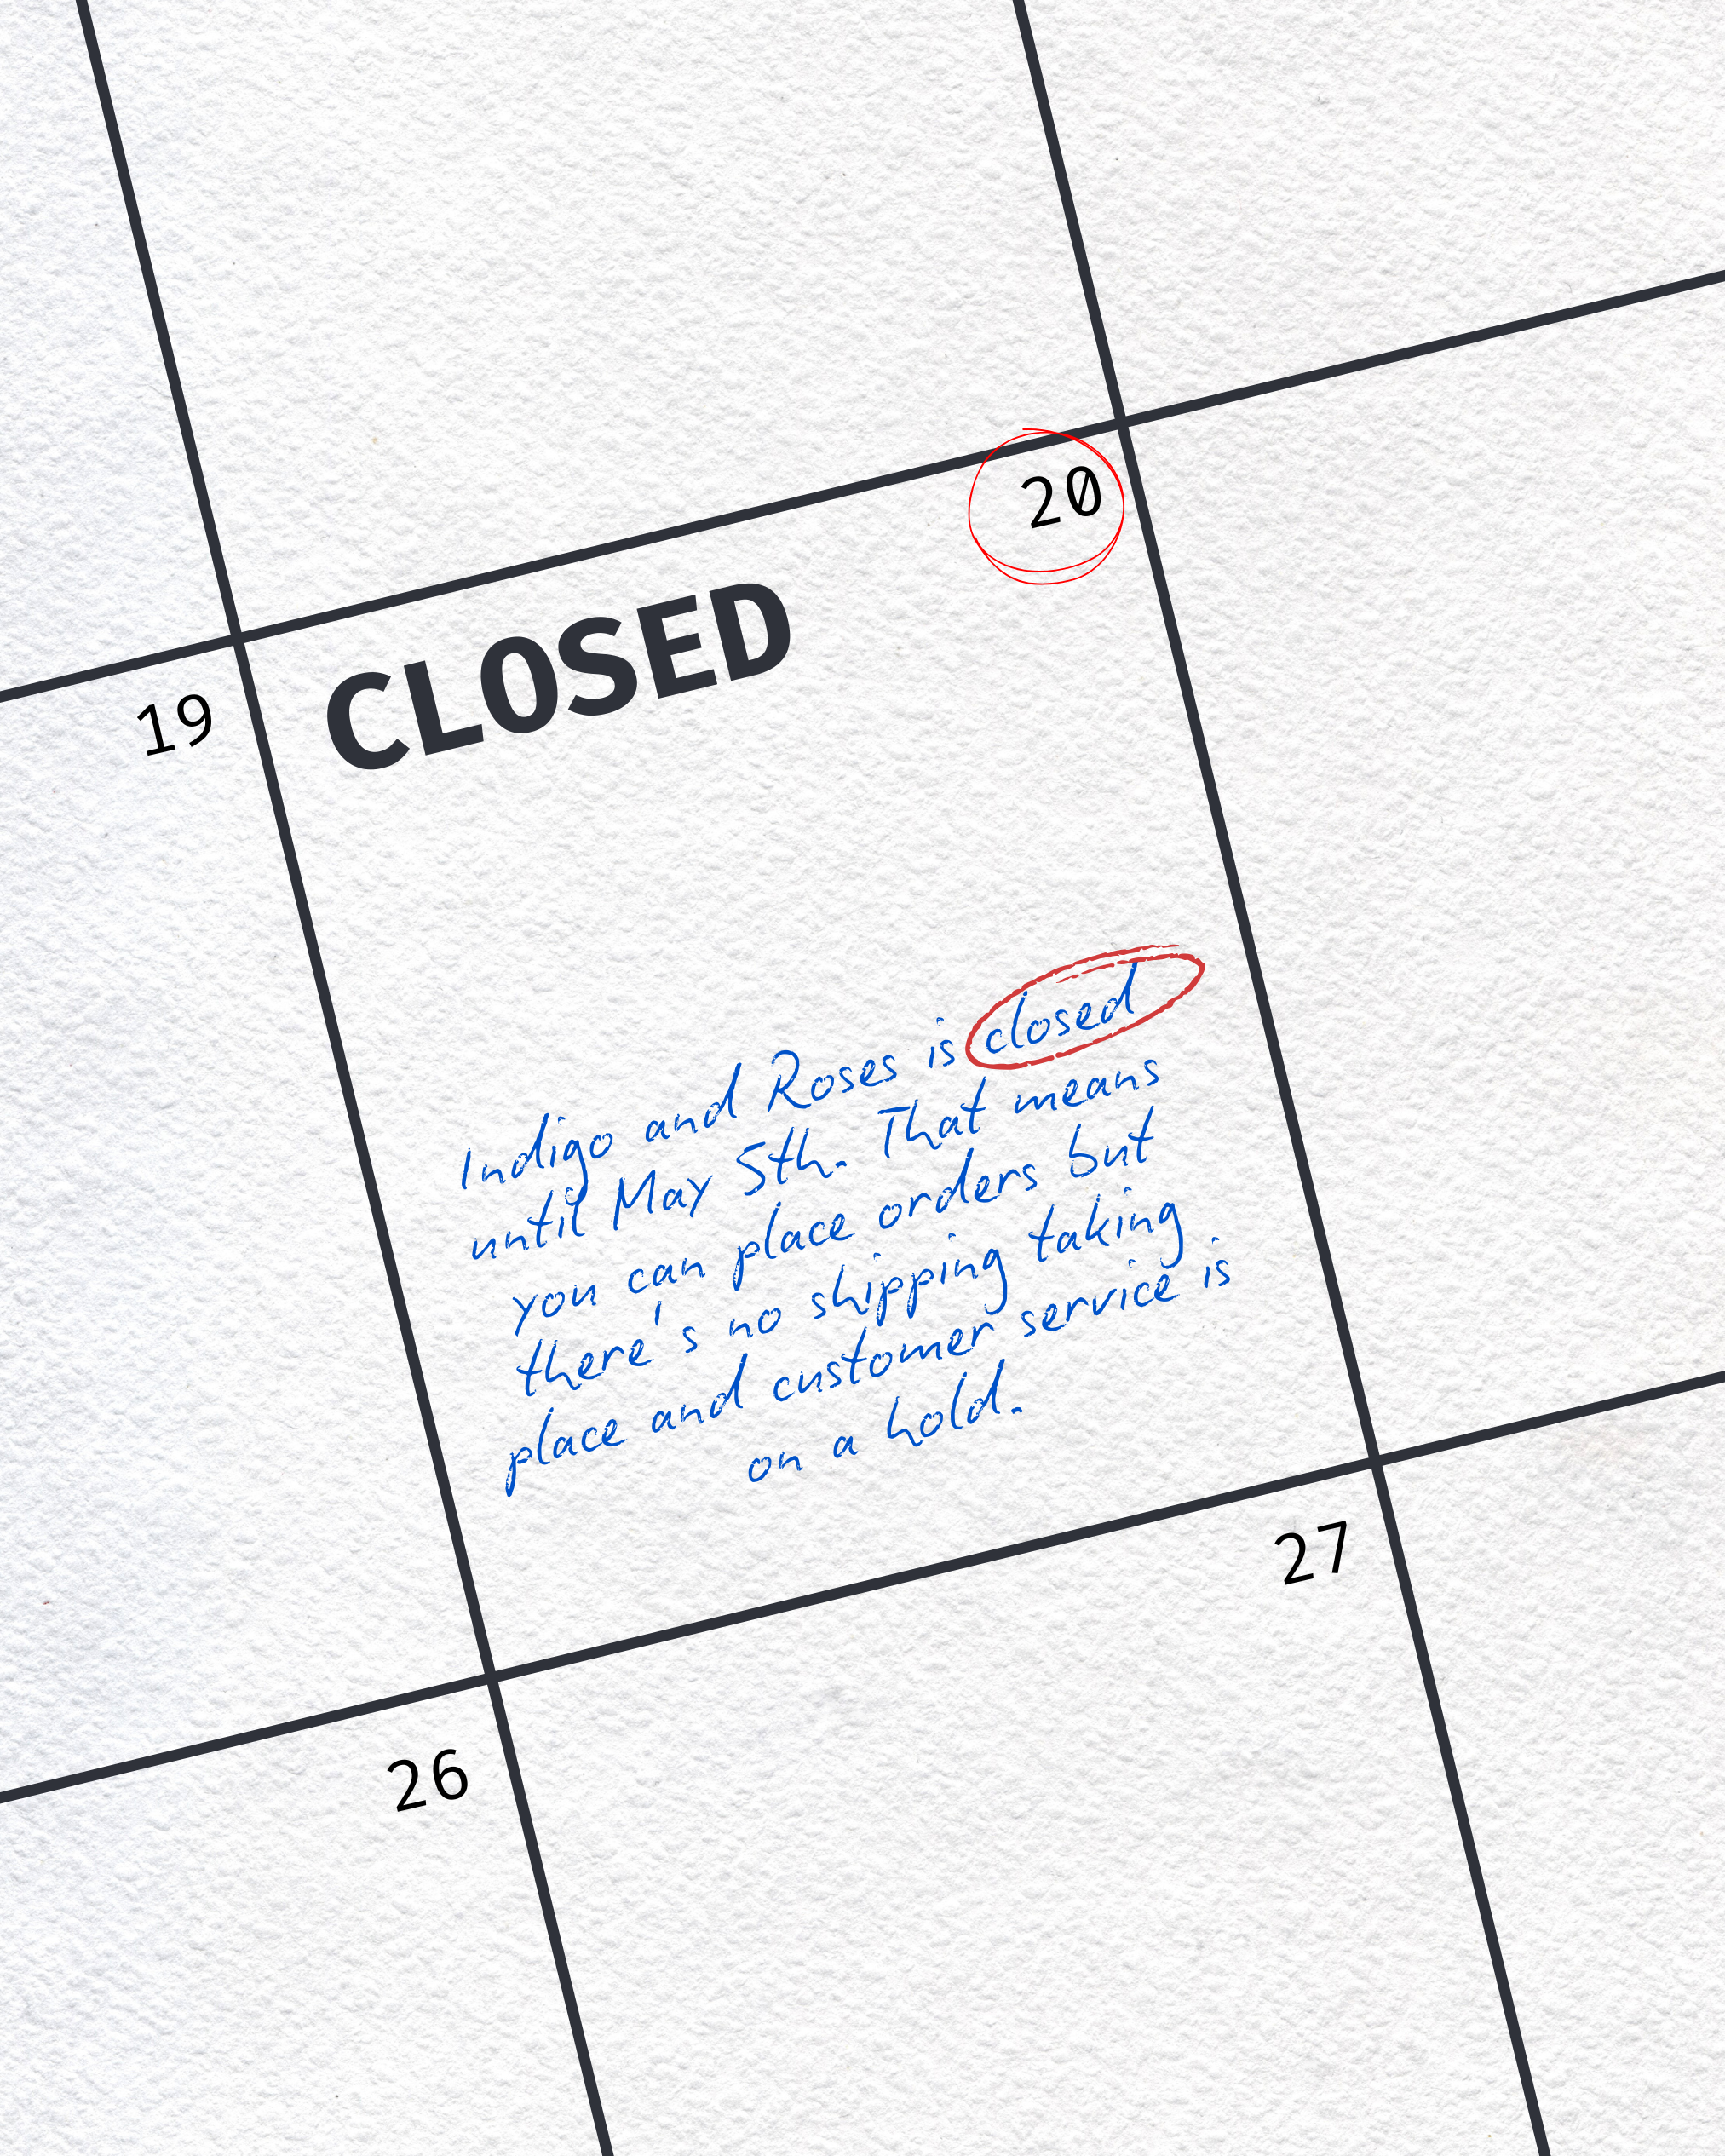 20
CLOSED
19
Indigo and Roses is closed
until May 5th. That means
you can place orders but
there's no shipping taking
place and customer service is
on a hold.
27
26